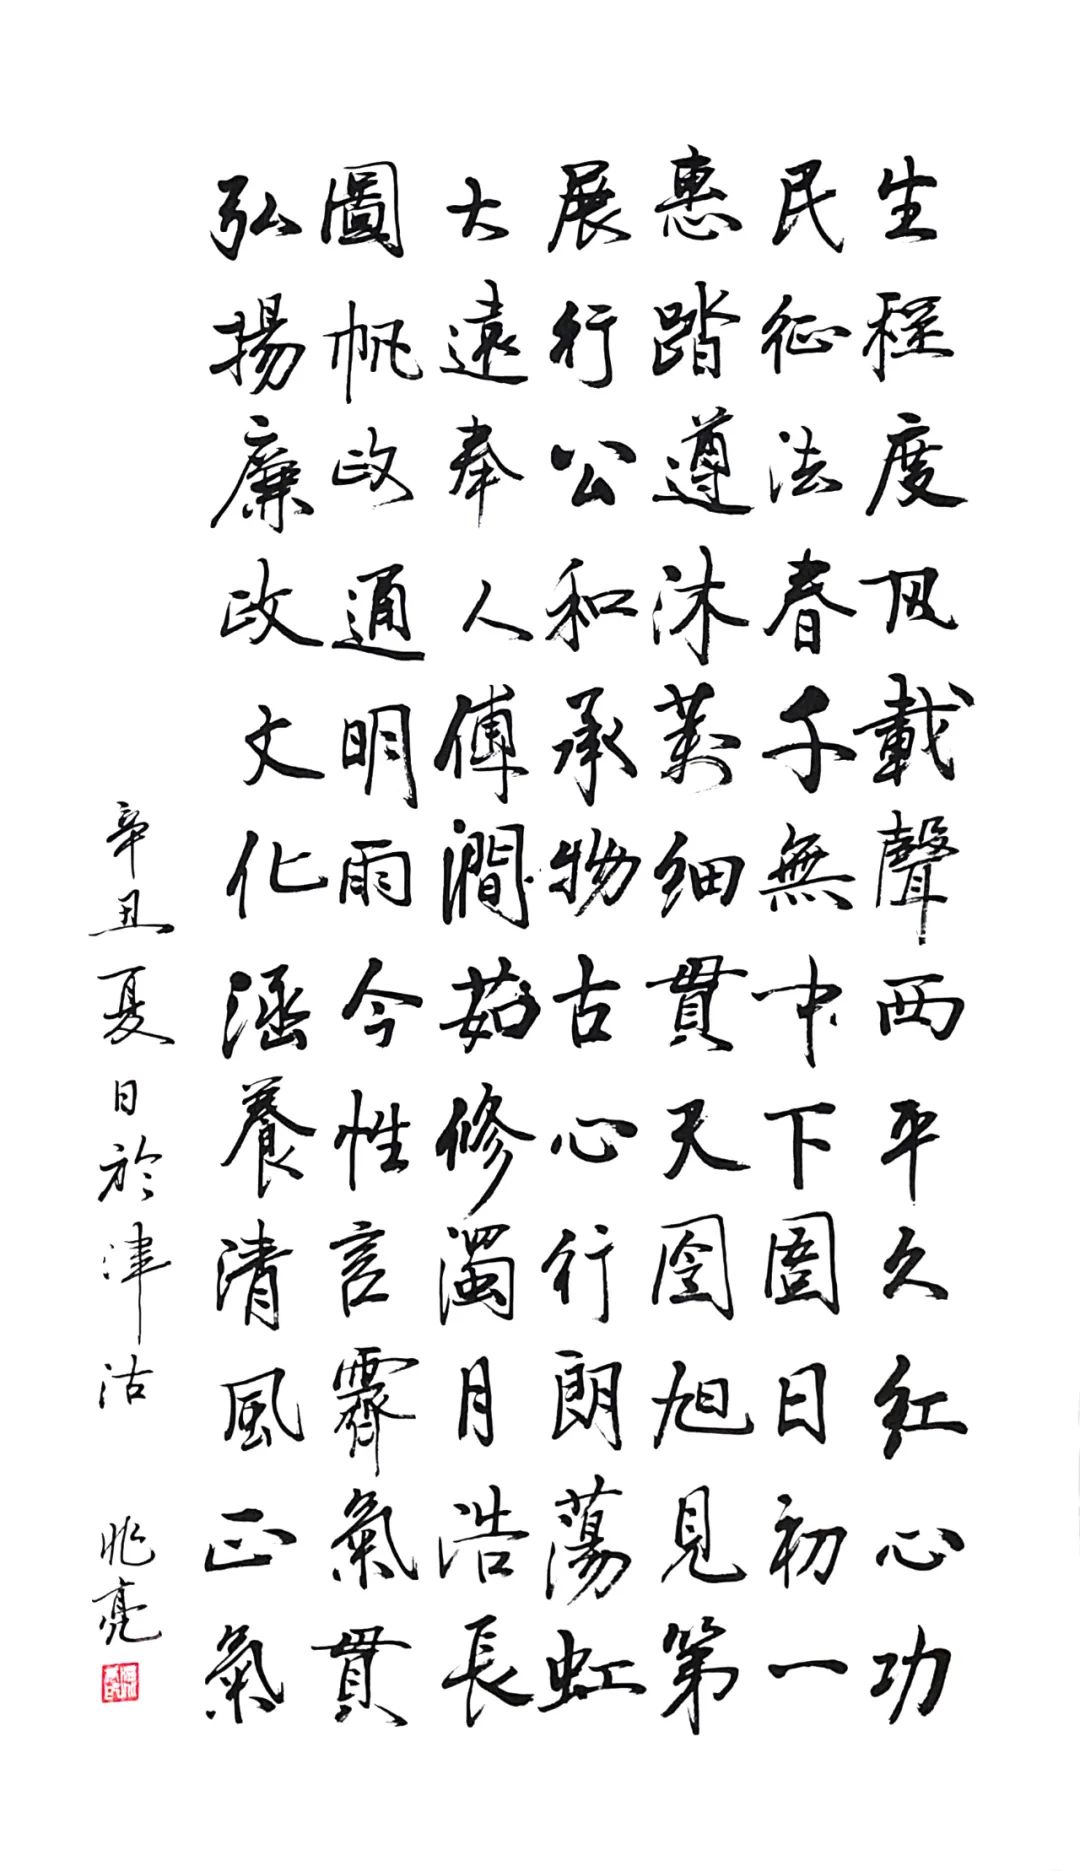 弘圖大展惠民生
揚帆遠行踏征程
廉政奉公遵法度
政通人和沐春凨
文明傳承萬千載
化雨潤物細無聲
涵今茹古貫中西
養性修心天下平
清言濁行囹圄久
風霽月朗旭日紅
正氣浩蕩見初心
氣貫長虹第一功
辛丑夏日於津沽 兆亮